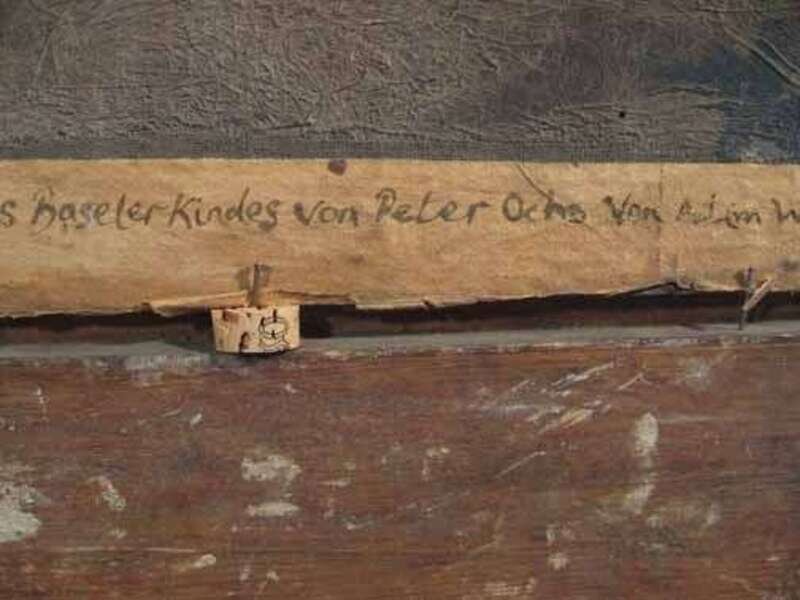 s Baseler Kindes von Peter Ochs von